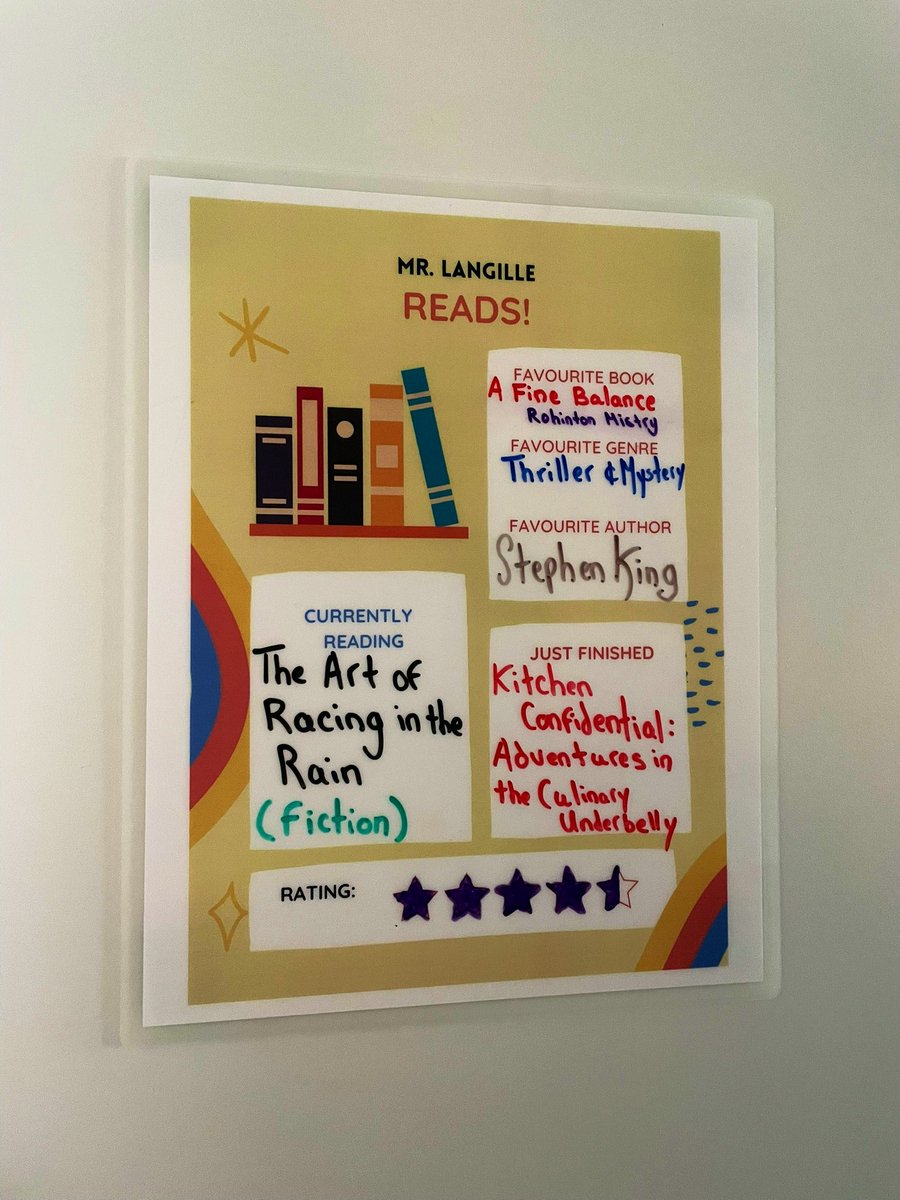 MR. LANGILLE
READS!
FAVOURITE BOOK
A Fine Balance
Rohinton Mistry
FAVOURITE GENRE
Thriller & Mystery
FAVOURITE AUTHOR
Stephen King
CURRENTLY
READING
The Art of
Racing in the
Rain
(Fiction)
JUST FINISHED
Kitchen
Confidential:
Adventures in
the Culinary
Underbelly
RATING: